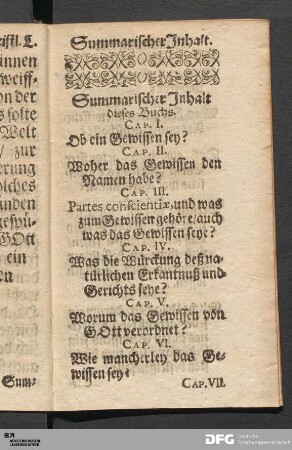 Summarischer Inhalt.
Summarischer Inhalt
dieses Buchs.
CAP. I.
Ob ein Gewissen sey?
CAP. II.
Woher das Gewissen den
Namen habe?
CAP. III.
Partes conscientiæ, und was
zum Gewissen gehöre/ auch
was das Gewissen seye?
CAP. IV.
Was die Würckung deß na-
türlichen Erkantnuß und
Gerichts seye?
CAP. V.
Worum das Gewissen von
GOtt verordnet?
CAP. VI.
Wie mancherley das Ge-
wissen sey?
CAP. VII.
innen
weiff-
on der
s solte
Welt
/ zur
erung
olches
unden
gespü-
GOtt
ein
en
Sum-
DFG Deutsche
Forschungsgemeinschaft